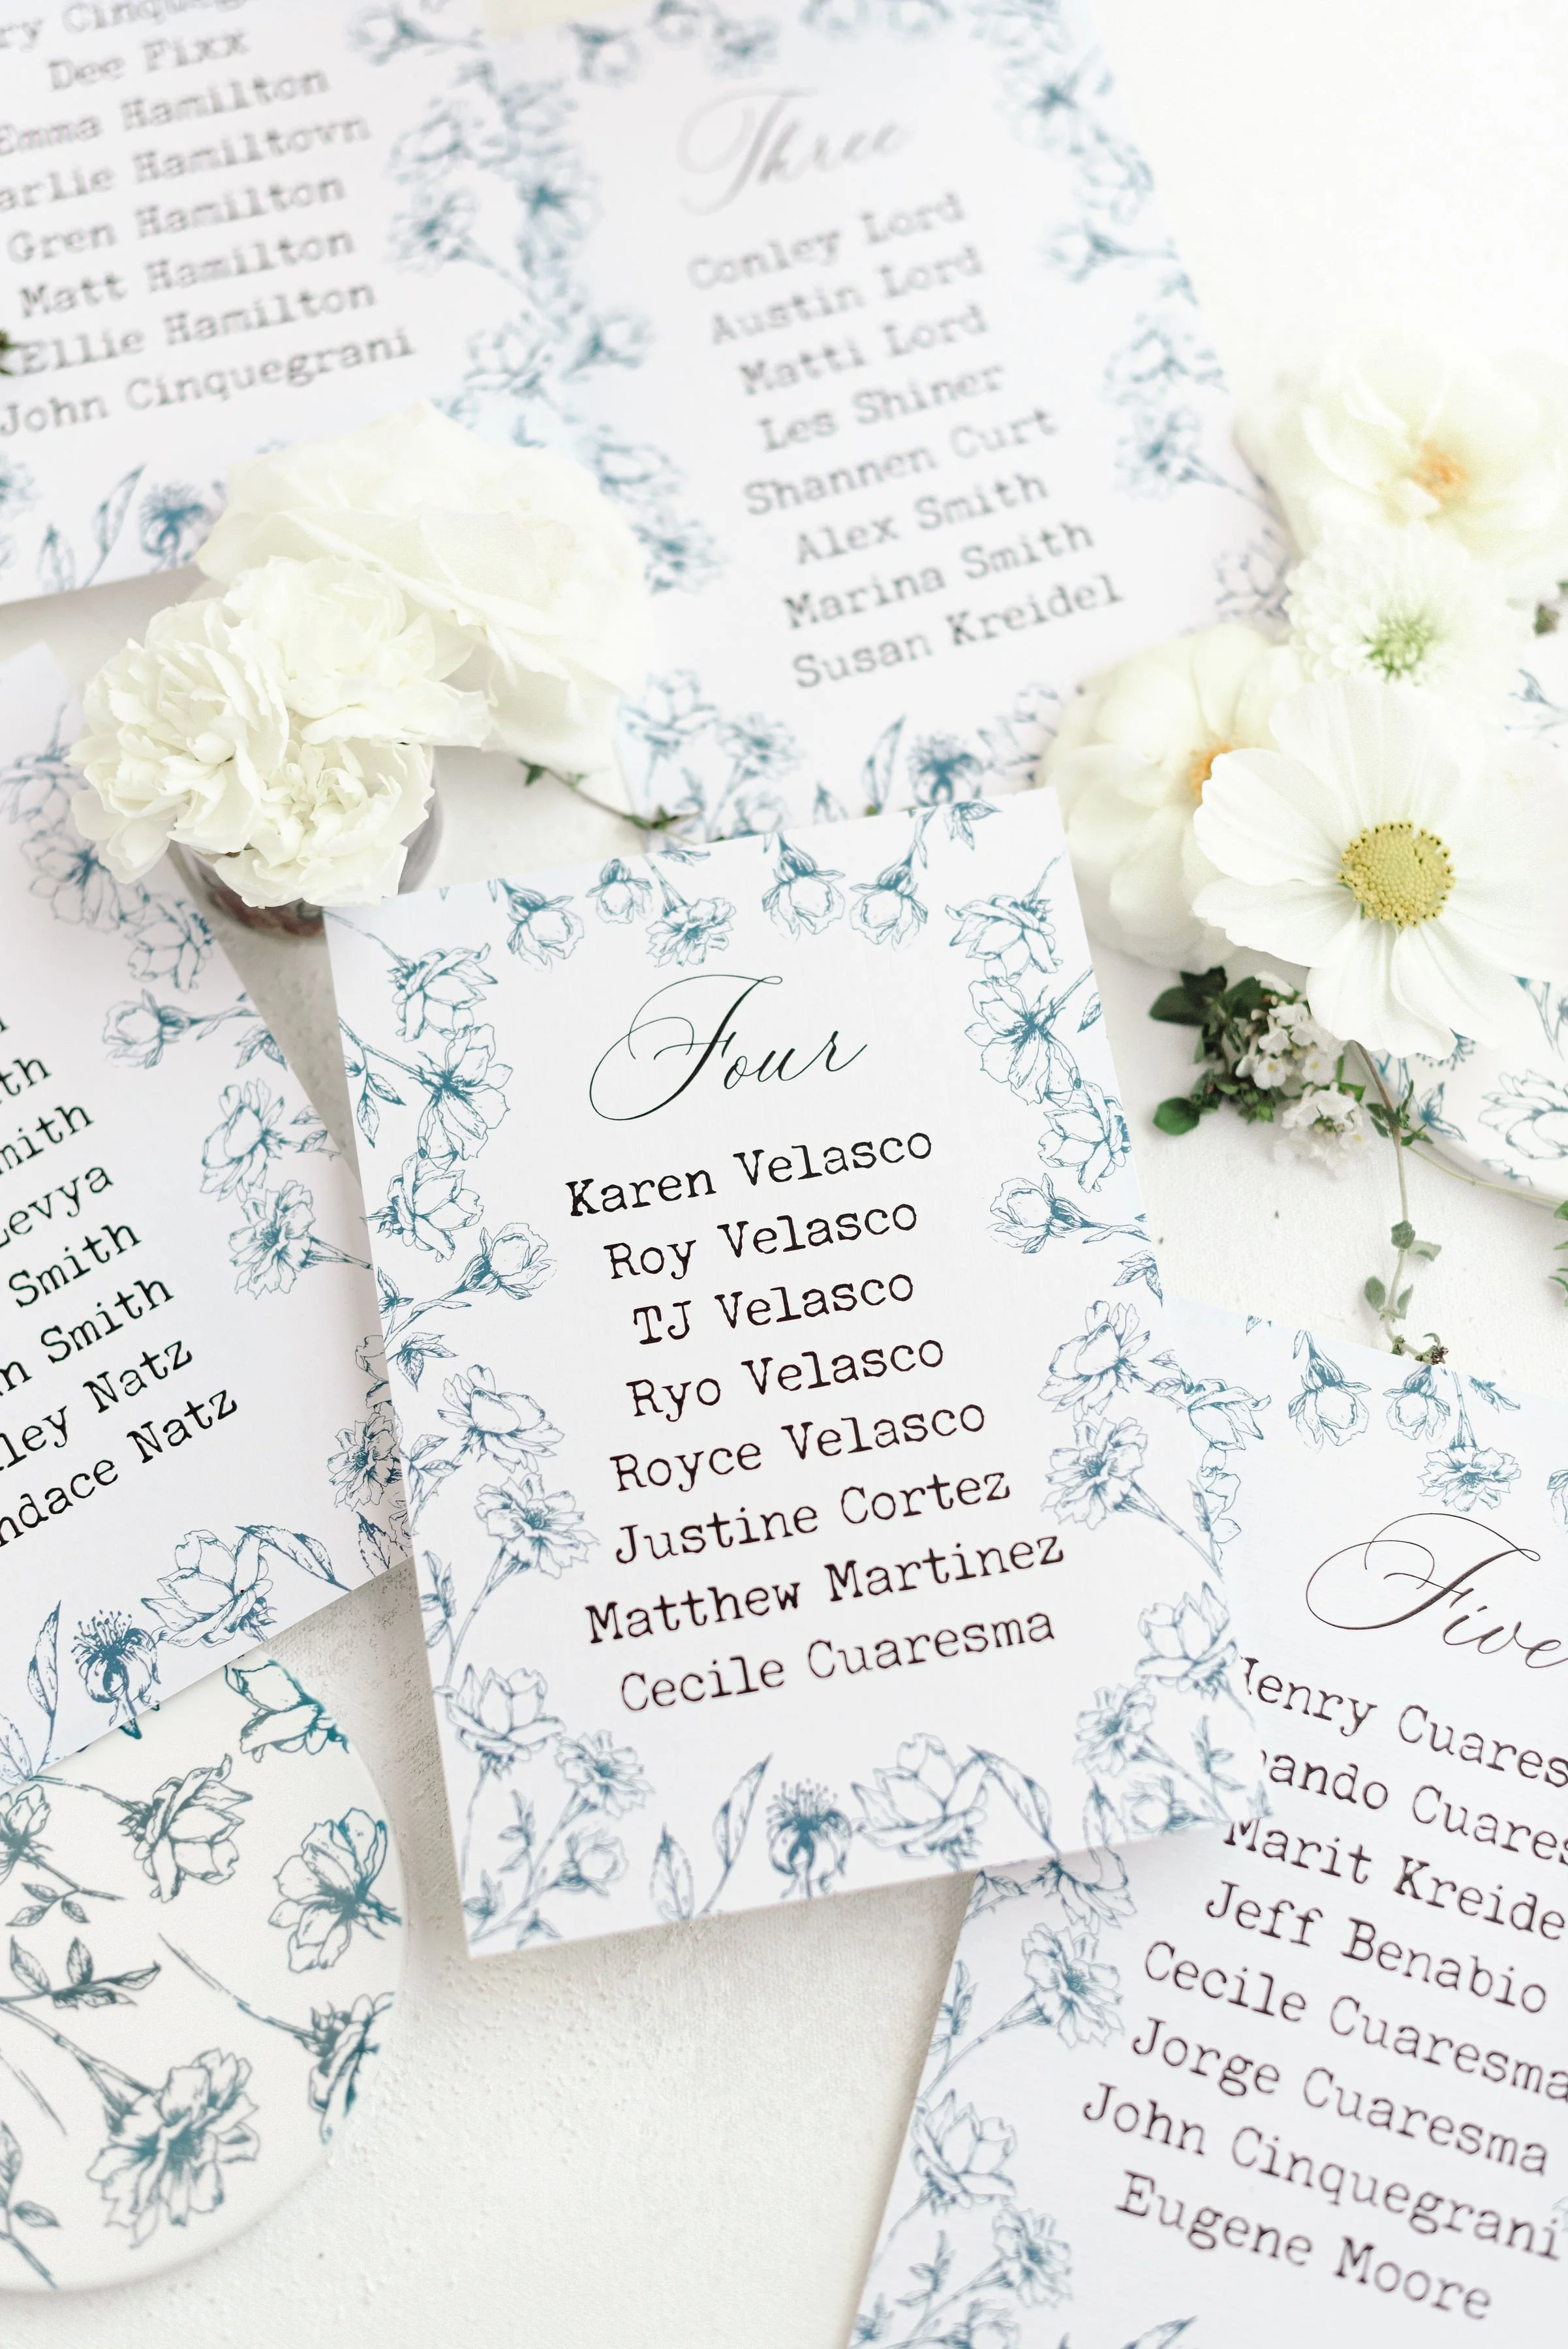 Dee Fixx
Emma Hamilton
Hamiltovn
Gren Hamilton
Matt Hamilton
Ellie Hamilton
John Cinquegrani
Three
Conley Lord
Austin Lord
Matti Lord
Les Shiner
Shannen Curt
Alex Smith
Marina Smith
Susan Kreidel
Levya
Smith
Smith
Natz
Natz
Four
Karen Velasco
Roy Velasco
TJ Velasco
Ryo Velasco
Royce Velasco
Justine Cortez
Matthew Martinez
Cecile Cuaresma
Five
Henry Cuares
ando Cuares
Marit Kreide
Jeff Benabio
Cecile Cuaresma
Jorge Cuaresma
John Cinquegrani
Eugene Moore